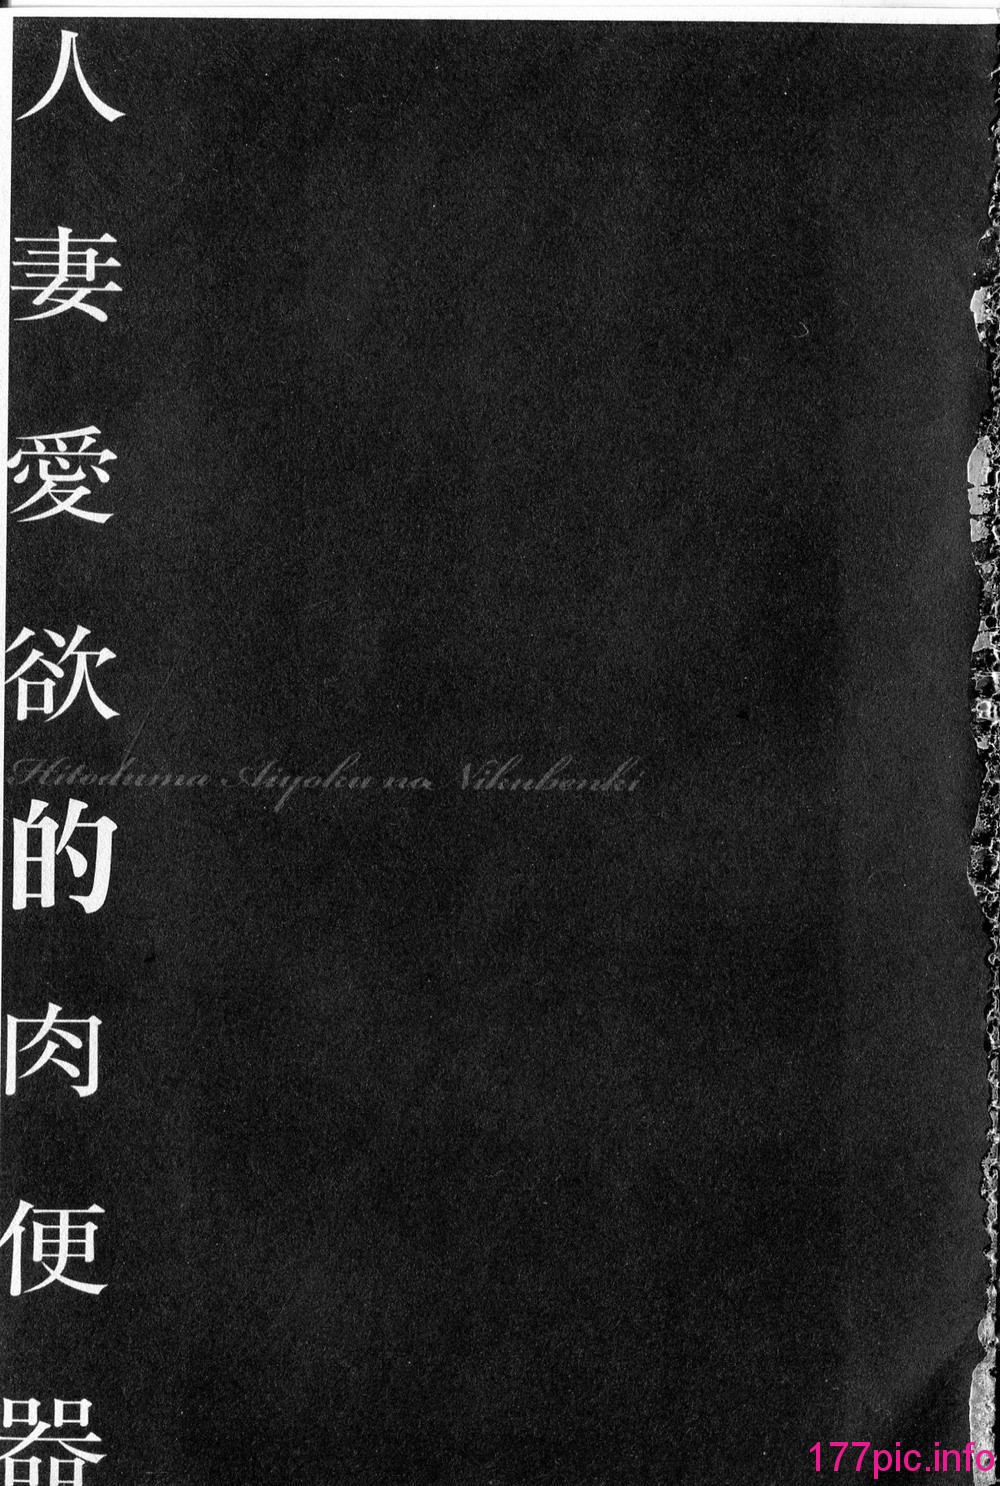 人妻愛欲的肉便器
Hitoduma Aiyoku na Nikubenki
177pic.info